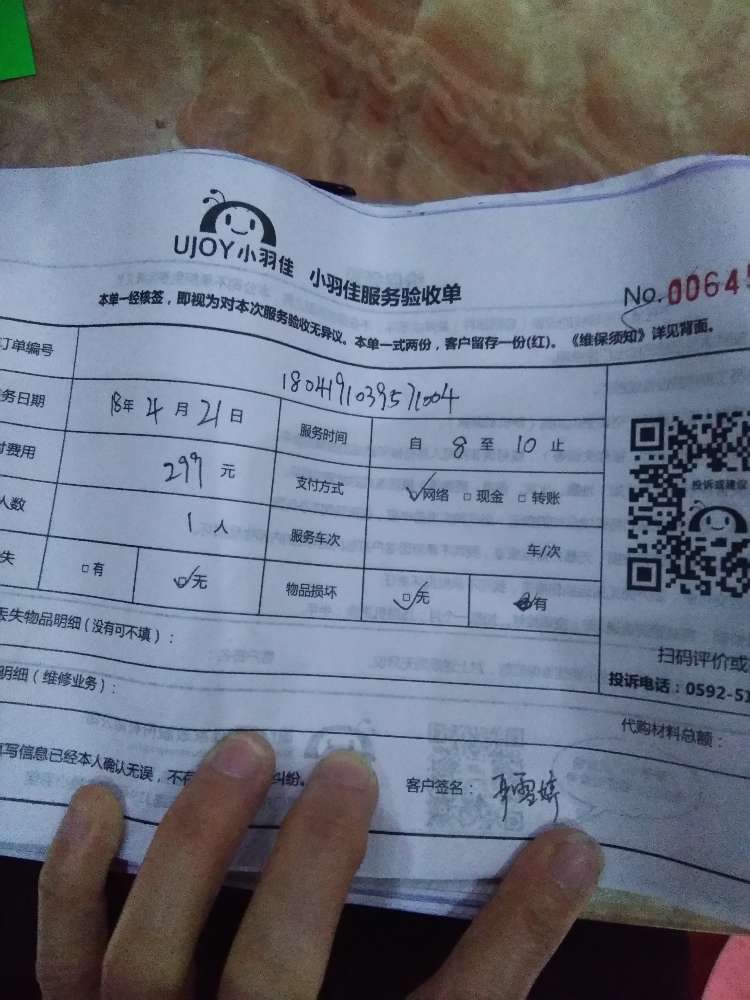 UJOY小羽佳 小羽佳服务验收单
No.0064
本单一经核签，即视为对本次服务验收无异议。本单一式两份，客户留存一份(红)。《维保须知》详见背面。
订单编号 1804191039571004
务日期 18年 4 月 21 日 服务时间 自 8 至 10 止
付费用 299 元 支付方式 ☑网络 □现金 □转账
人数 1 人 服务车次 车/次
失 □有 ☑无 物品损坏 ☑无 有
投诉或建议
丢失物品明细(没有可不填)：
扫码评价或
投诉电话：0592-51
明细(维修业务)：
代购材料总额：
填写信息已经本人确认无误，不存 纠纷。 客户签名： 雪婷